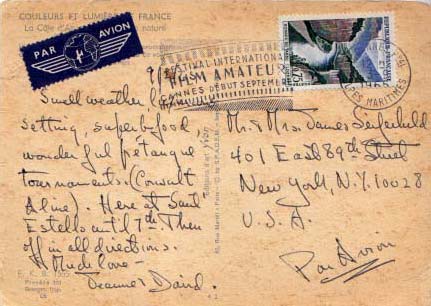 COULEURS ET LUMIÈRE DE FRANCE
La Côte d'Azur naturel
PAR AVION
FESTIVAL INTERNATIONAL
FILM AMATEUR
CANNES DÉBUT SEPTEMBRE
ALPES MARITIMES
Swell weather
setting, superb food,
wonderful pétanque
tournaments. (Consult
Aline). Here at Saint
Estello until 7th. Then
off in all directions.
Much love –
David.
Mr. & Mrs. James
401 East 89th Street
New York, N.Y. 10028
U.S.A.
Par Avion
E.K.B.